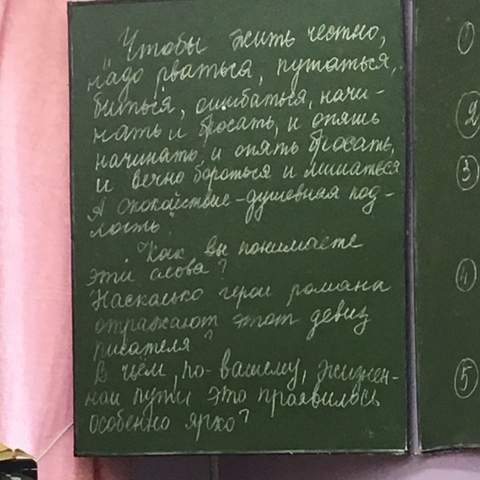 "Чтобы жить честно,
надо рваться, путаться,
биться, ошибаться, начи-
нать и бросать, и опять
начинать и опять бросать,
и вечно бороться и лишаться
А спокойствие - душевная под-
лость".
Как вы понимаете
эти слова?
Насколько герои романа
отражают этот девиз
писателя?
В чем, по-вашему, жизнен-
ном пути это проявилось
особенно ярко?
1
2
3
4
5